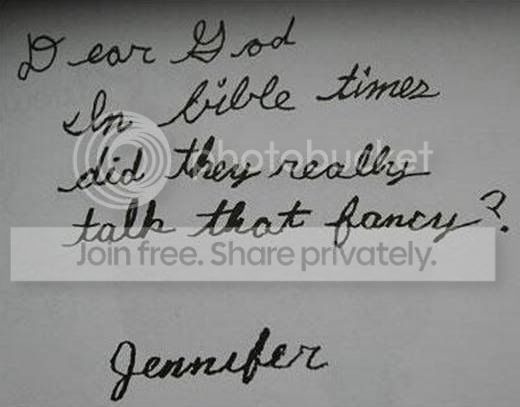 Dear God
In bible times
did they really
talk that fancy?
photobucket
Join free. Share privately.
Jennifer